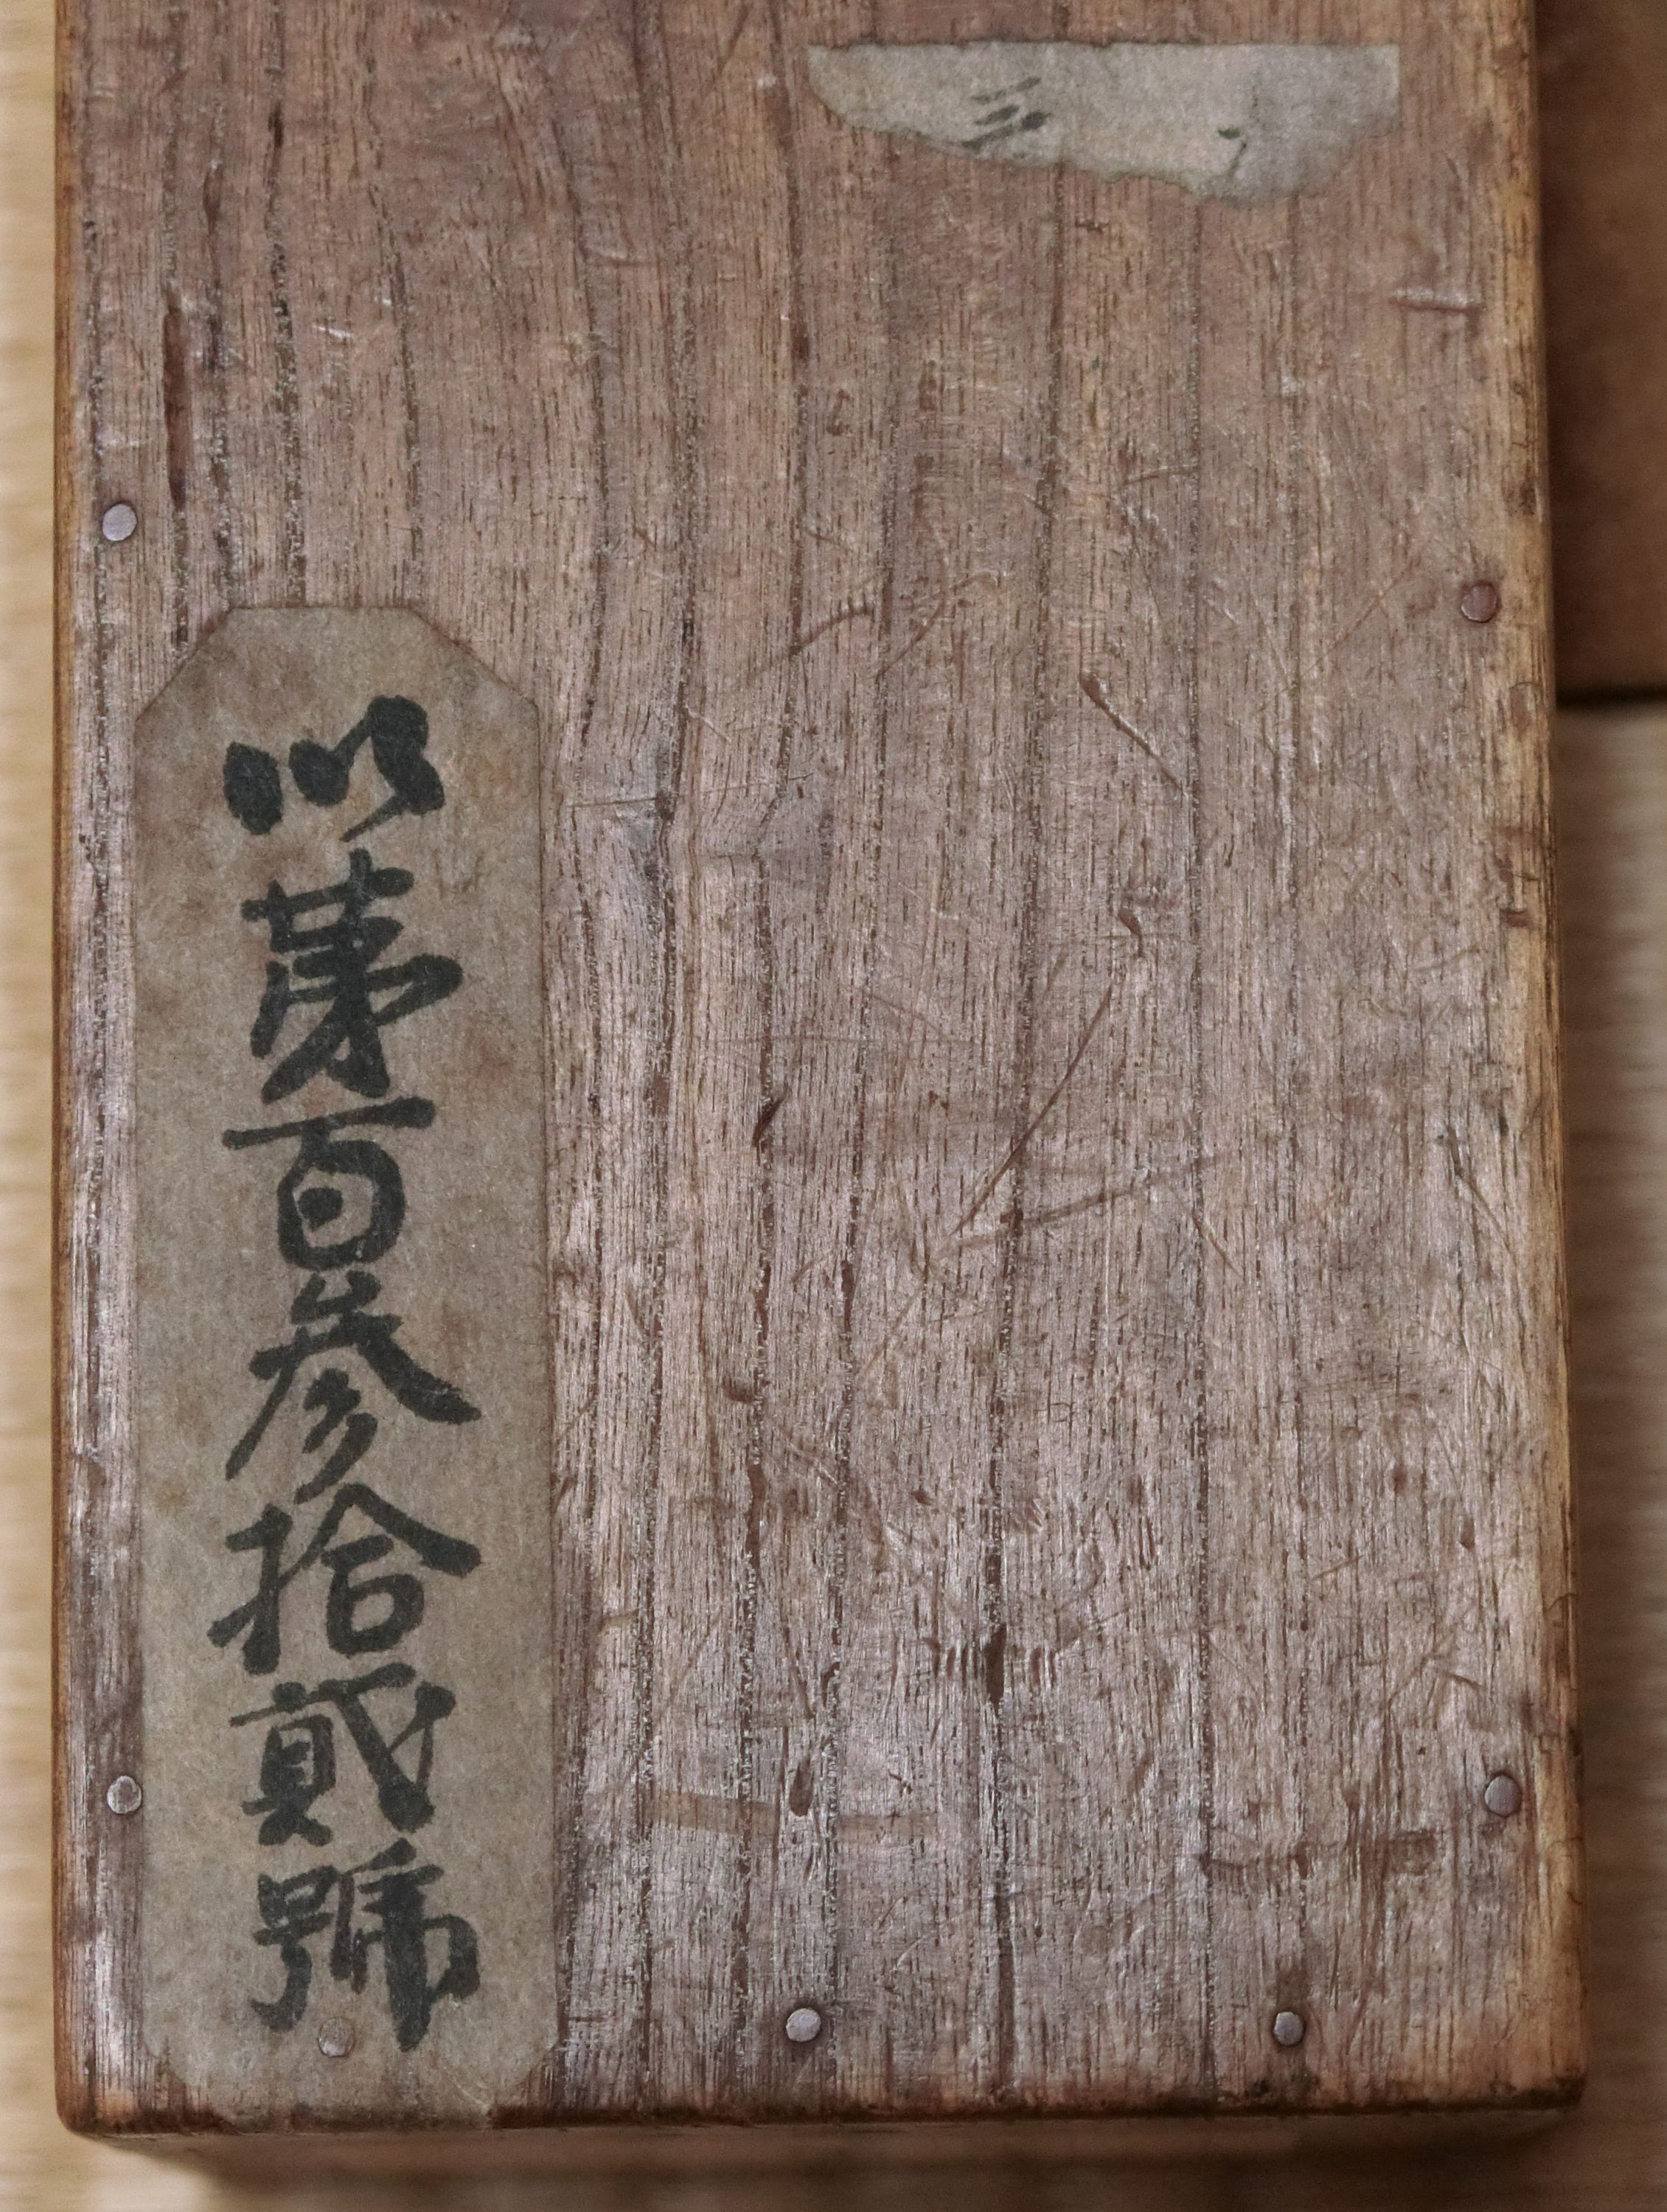 以第百参拾貳號